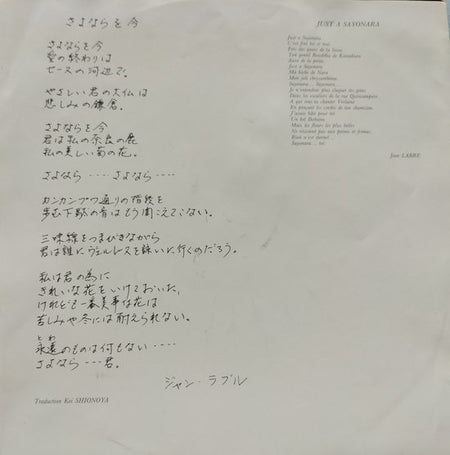 さよならを今
さよならを今
愛の終わりは
セーヌの河辺で。
やさしい君の大仏は
悲しみの鎌倉。
さよならを今
君は私の奈良の鹿
私の美しい菊の花。
さよなら ‥‥ さよなら ‥‥
カンカンプワ通りの階段を
歩む下駄の音はもう聞こえてこない。
三味線をつまびきながら
君は誰にヴェルレーヌを詠いに行くのだろう。
私は君の為に
きれいな花をいけておいた、
けれども一番美事な花は
苦しみや冬には耐えられない。
とわ
永遠のものは何もない ‥‥
さよなら ‥‥ 君。
ジャン・ラブル
Traduction Kei SHIONOYA
JUST A SAYONARA
Just a Sayonara,
C'est fini toi et moi,
Près des quais de la Seine.
Ton gentil Bouddha de Kamakura
Aura de la peine.
Just a Sayonara
Ma biche de Nara
Mon joli chrysanthème.
Sayonara... Sayonara...
Je n'entendrai plus claquer tes getas
Dans les escaliers de la rue Quincampoix
A qui iras-tu chanter Verlaine
En pinçant les cordes de ton shamisen.
J'avais bâti pour toi
Un bel Ikebana
Mais les fleurs les plus belles
Ne résistent pas aux peines et frimas.
Rien n'est éternel...
Sayonara... toi.
Jean LABRE